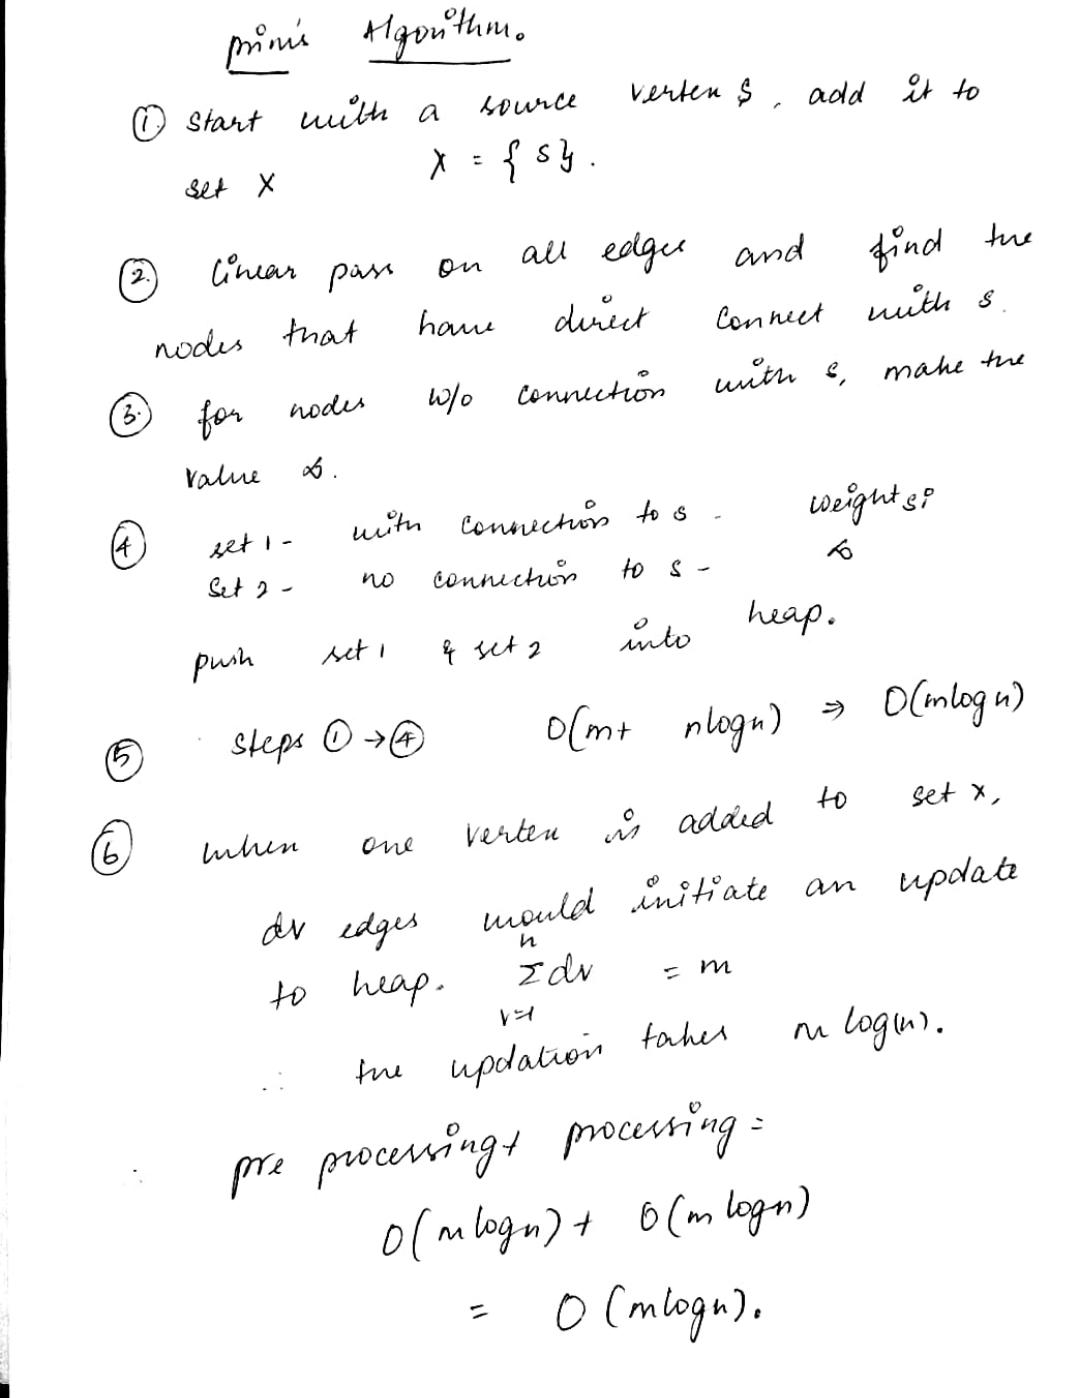 Prim's Algorithm.
① Start with a source vertex s, add it to
set X X = { s }.
② linear pass on all edges and find the
nodes that have direct connect with s.
③ for nodes w/o connection with s, make the
value ∞.
④ set 1 - with connection to s - weights;
Set 2 - no connection to s - ∞
push set 1 & set 2 into heap.
⑤ Steps ① → ④ O(m + nlogn) ⇒ O(mlogn)
⑥ when one vertex is added to set X,
dv edges would initiate an update
to heap. n Σ v=1 dv = m
∴ the updation takes m log(n).
∴ pre processing + processing =
O(mlogn) + O(mlogn)
= O(mlogn).